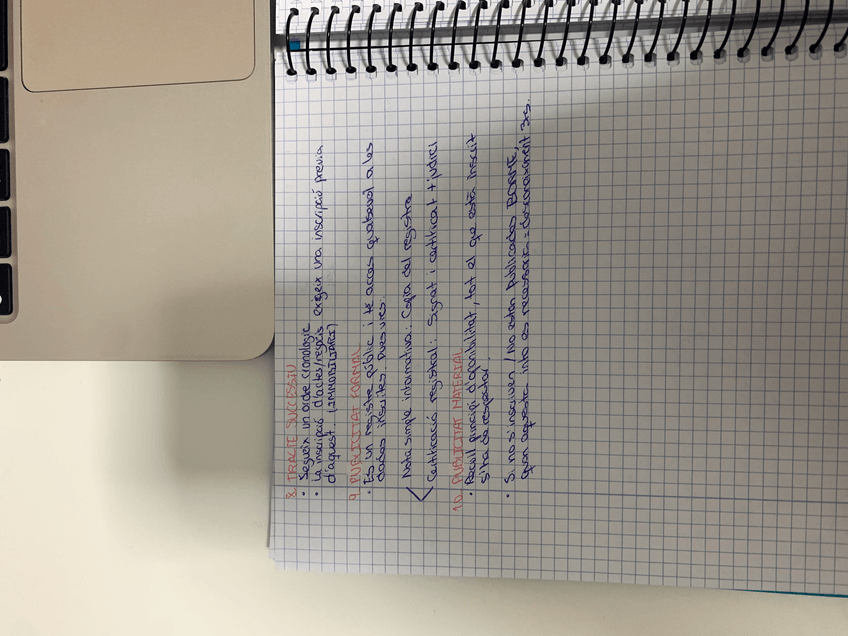 8. TRACTE SUCCESSIU
• Segueix un ordre cronològic
• La inscripció d'actes/negocis exigeix una inscripció prèvia
d'aquest. (IMMOBILIARI)
9. PUBLICITAT FORMAL
• És un registre públic i té accés qualsevol a les
dades inscrites. Dues vies:
< Nota simple informativa: Còpia del registre
Certificació registral: Signat i certificat + judici
10. PUBLICITAT MATERIAL
• Recull principi d'oponibilitat, tot el que està inscrit
s'ha de respectar.
• Si no s'inscriuen / No estan publicades BORME,
quan aquesta info es necessària = desconeixement 3rs.